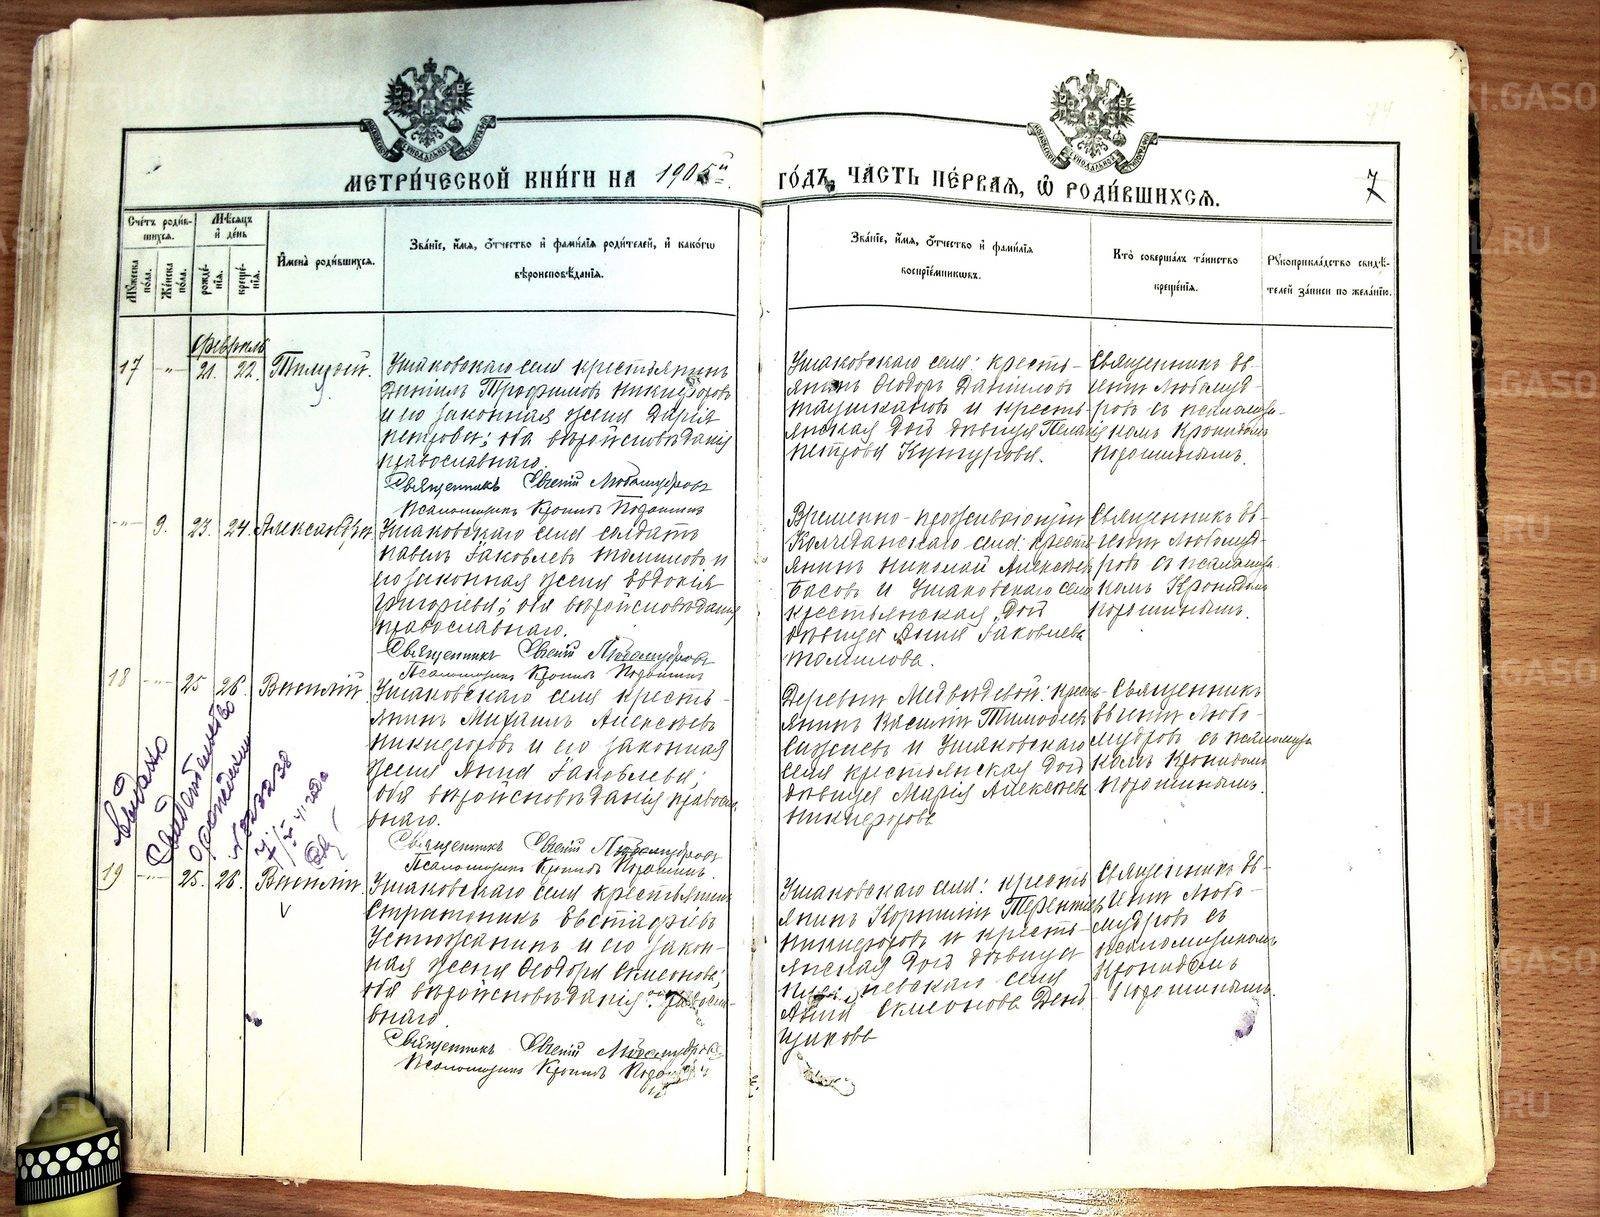 МЕТРИ́ЧЕСКОЙ КНИ́ГИ НА 1905й ГО́ДЪ, ЧА́СТЬ ПЕ́РВАЯ, Ѽ РОДИ́ВШИХСЯ.
7
Сче́тъ роди́в-
шихся.
Му́жеска по́ла.
Же́нска по́ла.
Мѣ́сяцъ и де́нь
рожде́нїя.
креще́нїя.
Имена̀ роди́вшихся.
Зва́нїе, и́мя, о́тчество и фами́лїя роди́телей, и како́гѡ
вѣроисповѣ́данїя.
Зва́нїе, и́мя, о́тчество и фами́лїя
воспрїе́мникѡвъ.
Кто̀ соверша́лъ та́инство
креще́нїя.
Рукоприкла́дство свидѣ́-
телей за́писи по жела́нїю.
Февраль
17
21.
22.
Тимофей.
Ушаковскаго села крестьянинъ
Даніилъ Трофимовъ Никифоровъ
и его законная жена Дарія
Петрова; оба вѣроисповѣданія
православнаго.
Священникъ Евгеній Любомудровъ
Псаломщикъ Кронидъ Порошинъ
Ушаковскаго села: кресть-
янинъ Ѳеодоръ Даніиловъ
и кресть-
янская дочь дѣвица Пелагія
Петрова
Священникъ Ев-
геній Любомуд-
ровъ съ псаломщи-
комъ Кронидомъ
Порошинымъ.
9.
23.
24.
Александра.
Ушаковскаго села солдатъ
Павелъ Іаковлевъ Томиловъ и
его законная жена Евдокія
Григоріева; оба вѣроисповѣданія
православнаго.
Священникъ Евгеній Любомудровъ
Псаломщикъ Кронидъ Порошинъ
Временно-проживающій
Колчеданскаго села: кресть-
янинъ Николай Алексѣевъ
Басовъ и Ушаковскаго села
крестьянская дочь
дѣвица Анна Іаковлева
Томилова.
Священникъ Ев-
геній Любомуд-
ровъ съ псаломщи-
комъ Кронидомъ
Порошинымъ.
18
25
26.
Василій.
Ушаковскаго села кресть-
янинъ Михаилъ Алексѣевъ
Никифоровъ и его законная
жена Анна Іаковлева;
оба вѣроисповѣданія православ-
наго.
Священникъ Евгеній Любомудровъ
Псаломщикъ Кронидъ Порошинъ.
Деревни Медвѣдевой: кресть-
янинъ Василій Тимоѳеевъ
и Ушаковскаго
села крестьянская дочь
дѣвица Марія Алексѣева
Никифорова
Священникъ
Евгеній Любо-
мудровъ съ псаломщи-
комъ Кронидомъ
Порошинымъ.
Выдано
Свидетельство
о рождении
19
25.
26.
Василій.
Ушаковскаго села крестьянинъ
Стратоникъ Евстафіевъ
Устюжанинъ и его закон-
ная жена Ѳеодора Симеонова;
оба вѣроисповѣданія православ-
наго.
Священникъ Евгеній Любомудровъ
Псаломщикъ Кронидъ Порошинъ
Ушаковскаго села: кресть-
янинъ Корнилій Терентьевъ
Никифоровъ и кресть-
янская дочь дѣвица
села
Анна Симеонова День-
щикова
Священникъ Ев-
геній Любо-
мудровъ съ
псаломщикомъ
Кронидомъ
Порошинымъ.